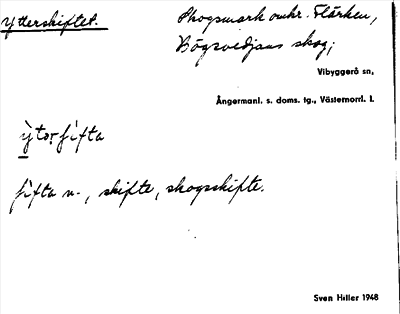 Ytterskiftet.
Skogsmark omkr. Flärken,
Bögsvedjans skog;
Vibyggerå sn,
Ångermanl. s. doms. tg., Västernorrl. l.
ỳtərʃìfta
ʃìfta n., skifte, skogsskifte.
Sven Hiller 1948